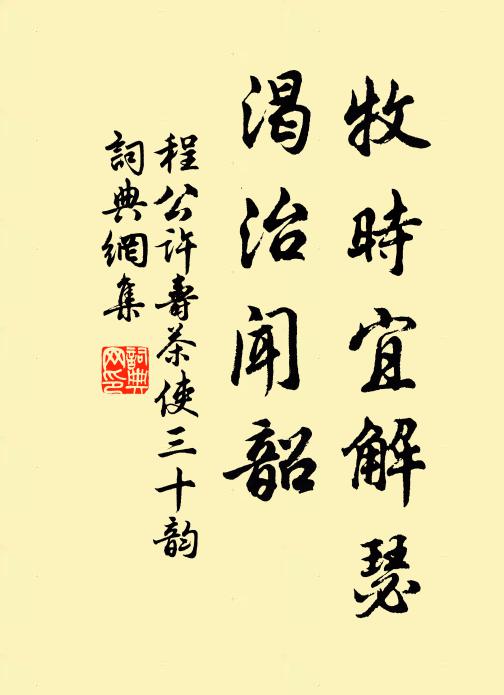 牧時宜解瑟
渴治闻韶
程公许壽茶使三十韵
詞典網集
詞典
网印